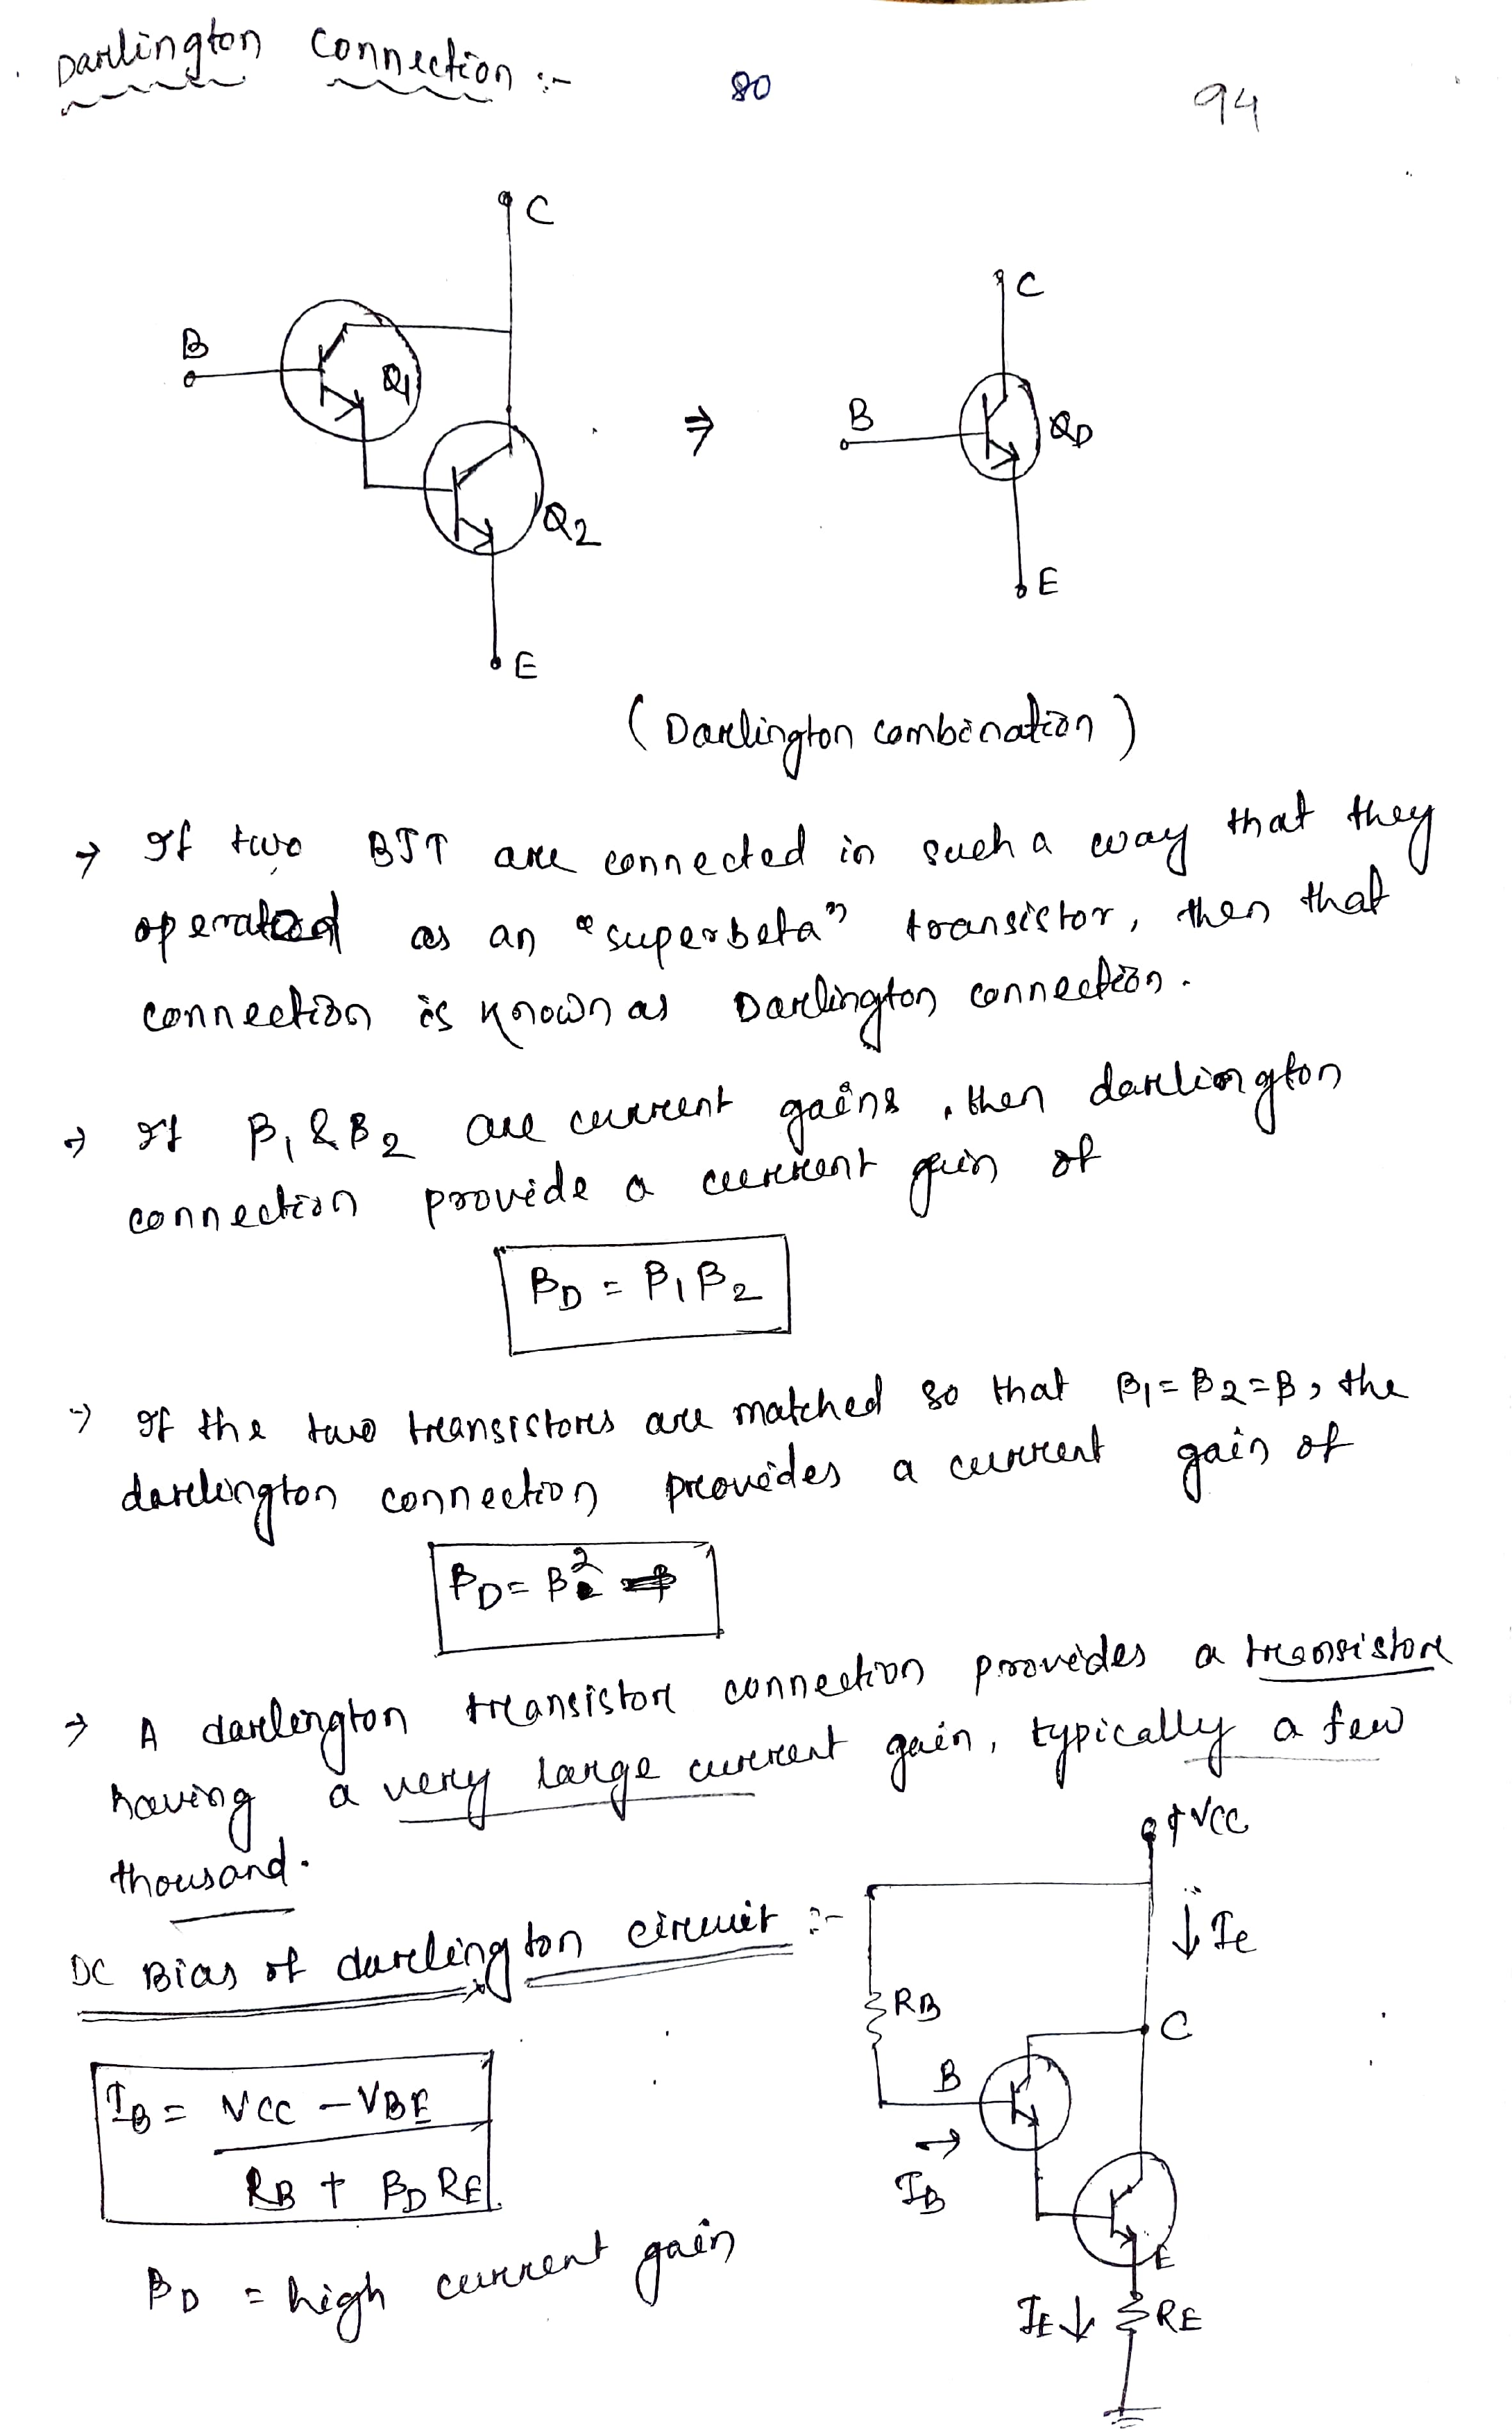 Darlington Connection :-
80
94
C
B
Q1
Q2
E
⇒
C
B
QD
E
(Darlington combination)
→ If two BJT are connected in such a way that they
operated as an "superbeta" transistor, then that
connection is known as Darlington connection.
→ If β1 & β2 are current gains, then darlington
connection provide a current gain of
βD = β1 β2
→ If the two transistors are matched so that β1 = β2 = β, the
darlington connection provides a current gain of
βD = β²
→ A darlington transistor connection provides a transistor
having a very large current gain, typically a few
thousand.
DC Bias of darlington circuit :-
+VCC
↓ Ic
RB
C
B
→
IB
E
IE ↓ RE
IB = VCC - VBE
RB + βD RE
βD = high current gain